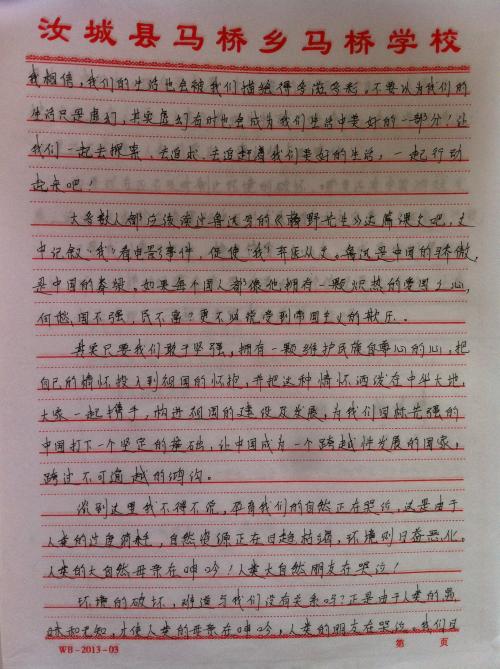 汝城县马桥乡马桥学校
我相信，我们的生活也会被我们描绘得多滋多彩。不要以为我们的
生活只是虚幻，其实虚幻有时也会成为我们生活中美好的一部分！让
我们一起去探索、去追求、去追赶着我们美好的生活，一起行动
起来吧！
大多数人都应该读过鲁迅写的《藤野先生》这篇课文吧，文
中记叙“我”看电影事件，促使“我”弃医从文。鲁迅是中国的骄傲，
是中国的脊梁。如果每个国人都像他拥有一颗炽热的爱国之心，
何愁国不强，民不富？更不必说受到帝国主义的欺压。
其实只要我们敢于坚强，拥有一颗维护民族自尊心的心，把
自己的情怀投入到祖国的怀抱，并把这种情怀洒泼在中华大地，
大家一起携手，构进祖国的建设及发展，为我们日渐光强的
中国打下一个坚定的基础，让中国成为一个跨越性发展的国家，
跨过不可逾越的鸿沟。
谈到这里我不得不说，孕育我们的自然正在哭泣，这是由于
人类的过度消耗，自然资源正在日趋枯竭，环境则日益恶化。
人类的大自然母亲在呻吟！人类大自然朋友在哭泣！
环境的破坏，难道与我们没有关系吗？正是由于人类的愚
昧和无知，才使人类的母亲在呻吟，人类的朋友在哭泣。我们日
WB-2013-03
第 页